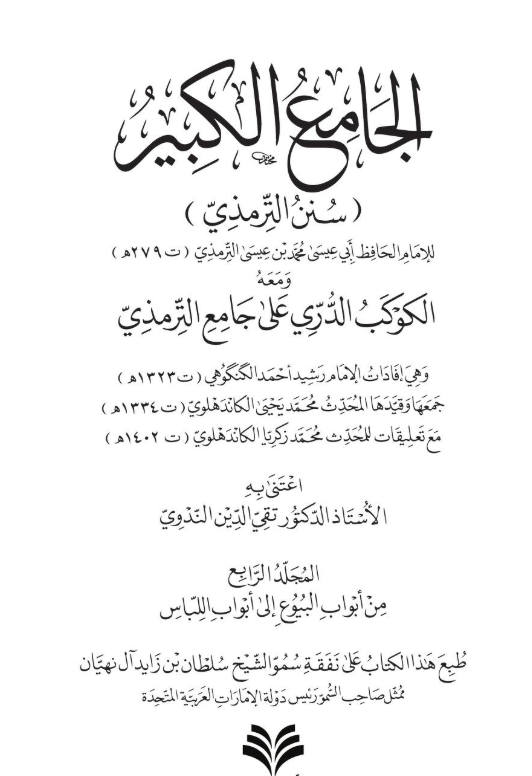 الجَامِعُ الكَبِيرُ
(سُنَنُ التِّرمذِيّ)
للإمَامِ الحَافِظ أَبي عِيسَىٰ مُحمَّد بْن عِيسَىٰ التِّرمذِيّ (ت ٢٧٩ھ)
وَمَعَهُ
الكَوْكَبُ الدُّرِّي عَلىٰ جَامِعِ التِّرمذِيّ
وَهِيَ إفَادَاتُ الإمَام رَشِيد أحْمَد الگنگوُهي (ت ١٣٢٣ھ)
جَمَعَهَا وَقَيَّدَهَا المُحَدِّثُ مُحَمَّد يَحْيَىٰ الكَاندَهلَويّ (ت ١٣٣٤ھ)
مَعَ تَعلِيقَات للمُحَدِّث مُحَمَّد زَكَرِيّا الكَاندَهلَويّ (ت ١٤٠٢ھ)
اعْتَنىٰ بِهِ
الأُسْتَاذ الدّكتُور تَقِيّ الدِّيْن النَّدْوِيّ
المُجَلَّدُ الرَّابِع
مِنْ أبْوَابِ البُيُوُعِ إلىٰ أبْوَابِ اللِّبَاسِ
طُبِعَ هَذا الكتَابُ عَلىٰ نَفَقَةِ سُمُوّ الشَّيْخ سُلطَان بْن زَايد آل نهيَان
مُمَثّل صَاحِب السُّمُوّ رَئيس دَوْلة الإمَارَات العَرَبيَّة المتّحِدَة